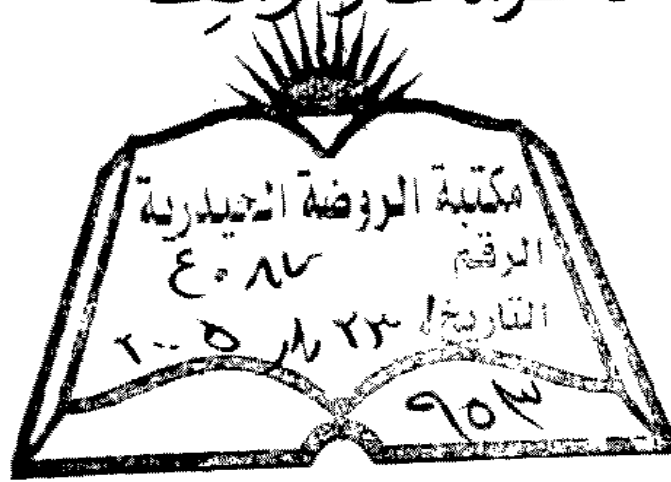 مكتبة الروضة الحيدرية
الرقم ٤٠٨٧
التاريخ ٢٣
٢٠٠٥
٩٥٣